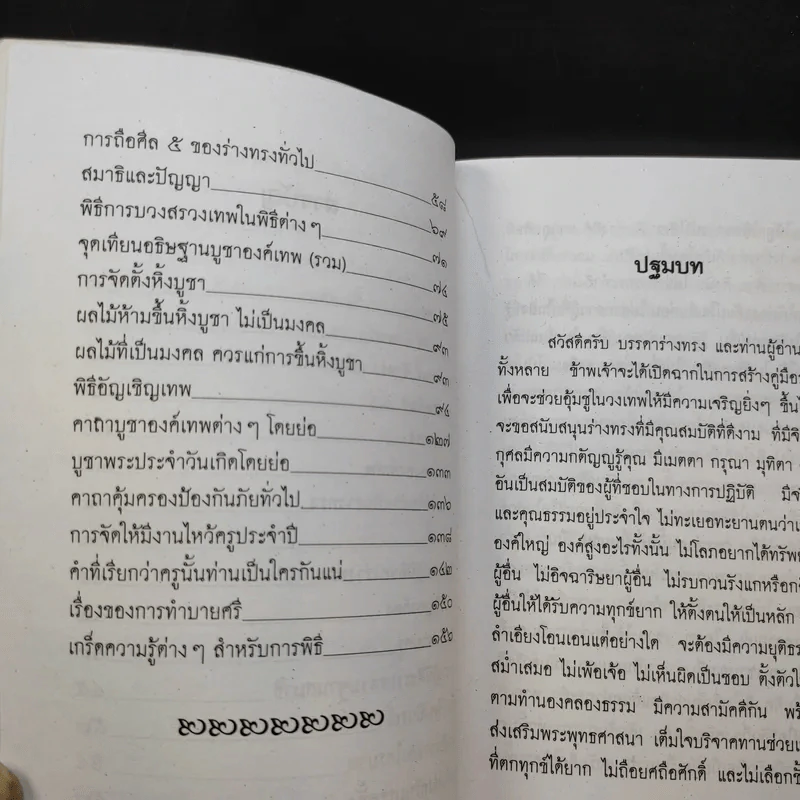 การถือศีล ๕ ของร่างทรงทั่วไป ๕๘
สมาธิและปัญญา ๖๙
พิธีการบวงสรวงเทพในพิธีต่าง ๆ ๗๑
จุดเทียนอธิษฐานบูชาองค์เทพ (รวม) ๗๔
การจัดตั้งหิ้งบูชา ๗๕
ผลไม้ห้ามขึ้นหิ้งบูชา ไม่เป็นมงคล ๙๓
ผลไม้ที่เป็นมงคล ควรแก่การขึ้นหิ้งบูชา ๙๓
พิธีอัญเชิญเทพ ๙๔
คาถาบูชาองค์เทพต่าง ๆ โดยย่อ ๑๒๗
บูชาพระประจำวันเกิดโดยย่อ ๑๓๓
คาถาคุ้มครองป้องกันภัยทั่วไป ๑๓๖
การจัดให้มีงานไหว้ครูประจำปี ๑๓๘
คำที่เรียกว่าครูนั้นท่านเป็นใครกันแน่ ๑๔๒
เรื่องของการทำบายศรี ๑๕๐
เกร็ดความรู้ต่าง ๆ สำหรับการพิธี
ปฐมบท
สวัสดีครับ บรรดาร่างทรง และท่านผู้อ่าน
ทั้งหลาย ข้าพเจ้าจะได้เปิดฉากในการสร้างคู่มือ
เพื่อจะช่วยอุ้มชูในวงเทพให้มีความเจริญยิ่งๆ
จะขอสนับสนุนร่างทรงที่มีคุณสมบัติที่ดีงาม
กุศลมีความกตัญญูรู้คุณ มีเมตตา กรุณา มุทิตา
อันเป็นสมบัติของผู้ที่ชอบในทางการปฏิบัติ
และคุณธรรมอยู่ประจำใจ ไม่ทะเยอทะยานตนว่า
องค์ใหญ่ องค์สูงอะไรทั้งนั้น ไม่โลภอยากได้ทรัพย์
ผู้อื่น ไม่อิจฉาริษยาผู้อื่น ไม่รบกวนรังแกหรือ
ผู้อื่นให้ได้รับความทุกข์ยาก ให้ตั้งตนให้เป็นหลัก
ลำเอียงโอนเอนแต่อย่างใด จะต้องมีความ
สม่ำเสมอ ไม่เพ้อเจ้อ ไม่เห็นผิดเป็นชอบ
ตามทำนองคลองธรรม มีความสามัคคีกัน
ส่งเสริมพระพุทธศาสนา เต็มใจบริจาคทานช่วย
ที่ตกทุกข์ได้ยาก ไม่ถือยศถือศักดิ์ และไม่เลือก